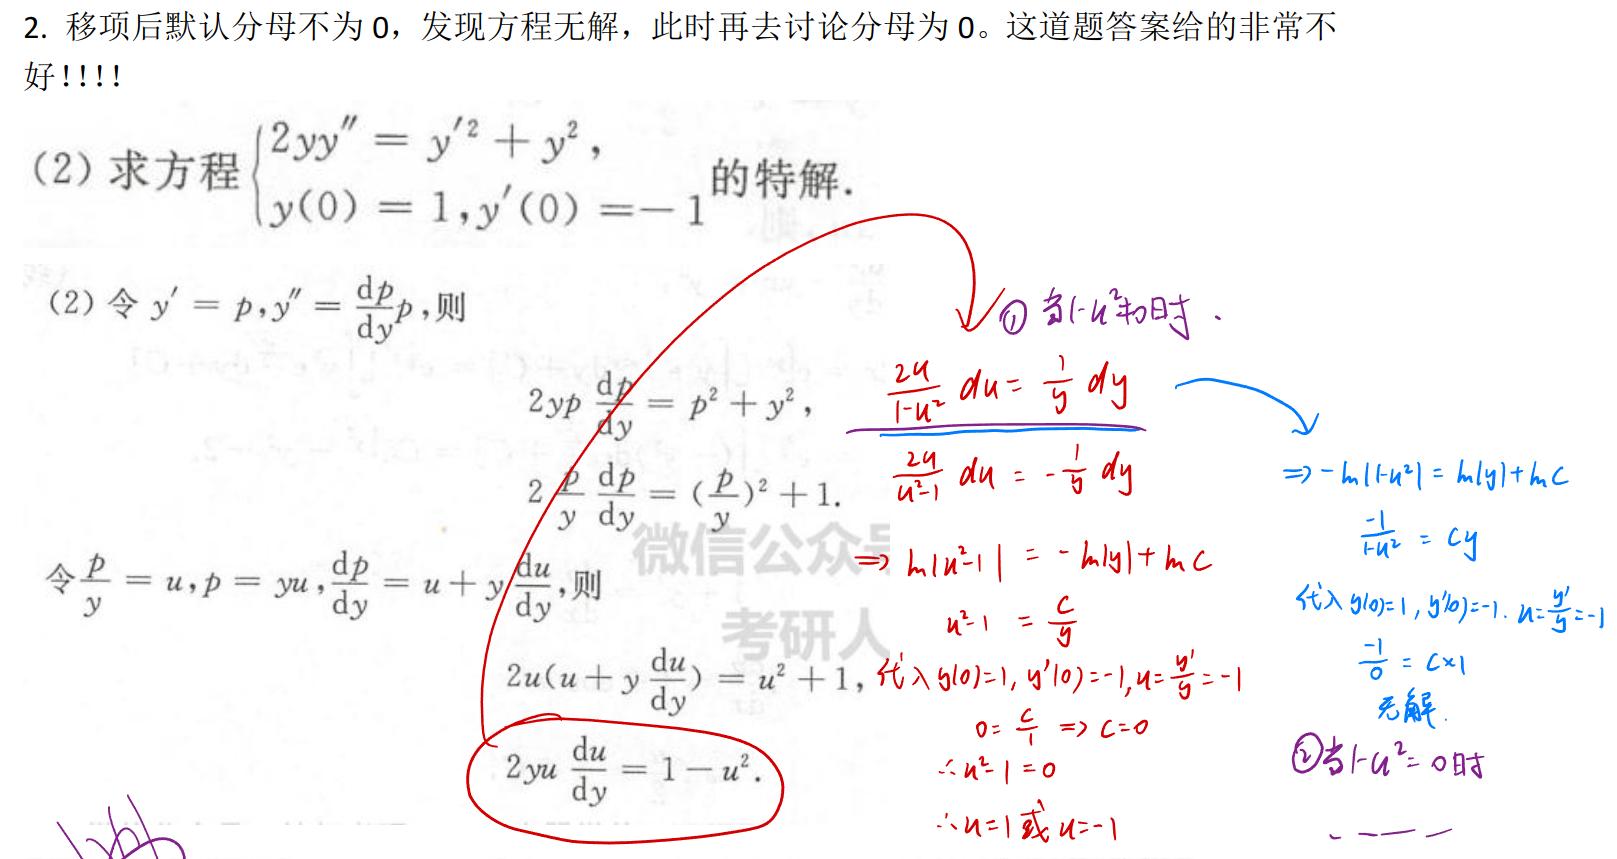 2. 移项后默认分母不为 0，发现方程无解，此时再去讨论分母为 0。这道题答案给的非常不
好！！！！
（2）求方程 { 2yy″ = y′² + y²,
y(0) = 1, y′(0) = −1 的特解.
（2）令 y′ = p, y″ = dp/dy p, 则
2yp dp/dy = p² + y²,
2 p/y dp/dy = (p/y)² + 1.
令 p/y = u, p = yu, dp/dy = u + y du/dy, 则
2u(u + y du/dy) = u² + 1,
2yu du/dy = 1 − u².
微信公众号
考研人
① 当1-u²≠0时.
2u/(1-u²) du = 1/y dy
2u/(u²-1) du = -1/y dy
=> ln|u²-1| = -ln|y| + ln C
u²-1 = C/y
代入 y(0)=1, y'(0)=-1, u=y'/y=-1
0 = C/1 => C=0
∴ u²-1=0
∴ u=1 或 u=-1
=> -ln|1-u²| = ln|y| + ln C
-1/(1-u²) = Cy
代入 y(0)=1, y'(0)=-1. u=y'/y=-1
-1/0 = C×1
无解.
② 当1-u²=0时